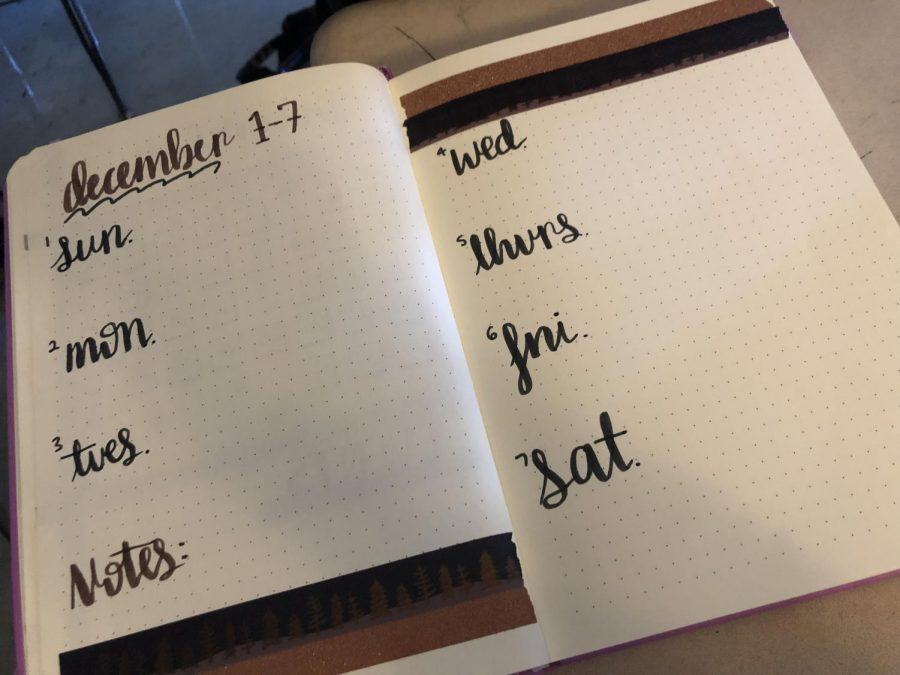 december 1-7
1 sun.
2 mon.
3 tues.
Notes:
4 wed.
5 thurs.
6 fri.
7 sat.